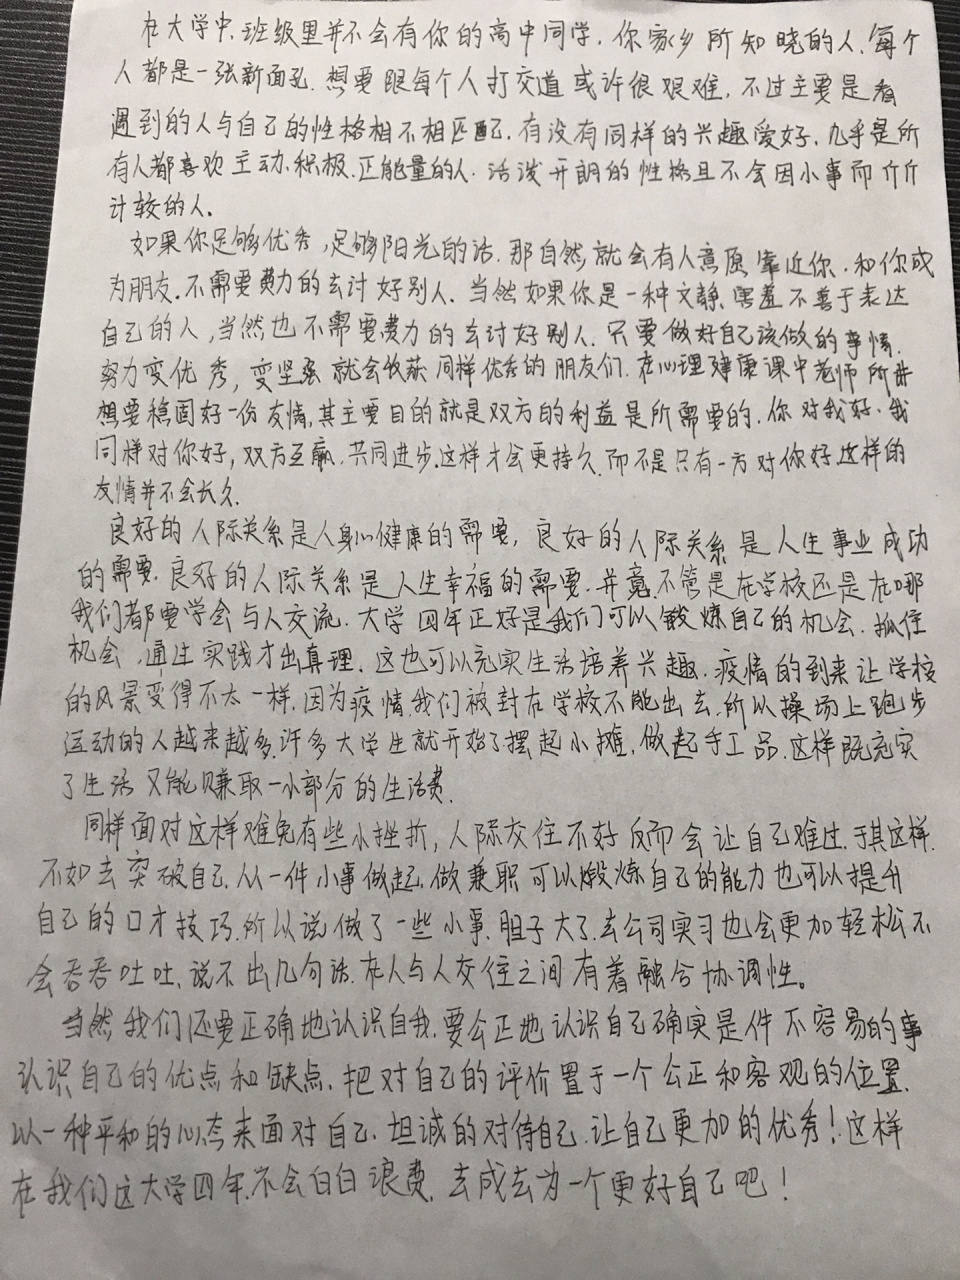 在大学中,班级里并不会有你的高中同学,你家乡所知晓的人,每个
人都是一张新面孔.想要跟每个人打交道或许很艰难,不过主要是看
遇到的人与自己的性格相不相匹配,有没有同样的兴趣爱好,几乎是所
有人都喜欢主动、积极、正能量的人.活泼开朗的性格且不会因小事而斤斤
计较的人.
如果你足够优秀,足够阳光的话,那自然就会有人意愿靠近你,和你成
为朋友.不需要费力的去讨好别人.当然如果你是一种文静、害羞不善于表达
自己的人,当然也不需要费力的去讨好别人.只要做好自己该做的事情,
努力变优秀,变坚强就会收获同样优秀的朋友们.在心理健康课中老师所讲
想要稳固好一份友情,其主要目的就是双方的利益是所需要的,你对我好,我
同样对你好,双方互赢,共同进步.这样才会更持久.而不是只有一方对你好这样的
友情并不会长久.
良好的人际关系是人身心健康的需要,良好的人际关系是人生事业成功
的需要.良好的人际关系是人生幸福的需要.并竟不管是在学校还是在哪
我们都要学会与人交流.大学四年正好是我们可以锻炼自己的机会.抓住
机会,通过实践才出真理.这也可以充实生活培养兴趣.疫情的到来让学校
的风景变得不太一样.因为疫情我们被封在学校不能出去.所以操场上跑步
运动的人越来越多.许多大学生就开始了摆起小摊,做起手工品.这样既充实
了生活又能赚取一小部分的生活费.
同样面对这样难免有些小挫折,人际交往不好反而会让自己难过.于其这样,
不如去突破自己.从一件小事做起,做兼职可以煅炼自己的能力也可以提升
自己的口才技巧.所以说做了一些小事.胆子大了.去公司实习也会更加轻松不
会吞吞吐吐,说不出几句话.在人与人交往之间有着融合协调性。
当然我们还要正确地认识自我.要公正地认识自己确实是件不容易的事
认识自己的优点和缺点.把对自己的评价置于一个公正和客观的位置.
以一种平和的心态来面对自己.坦诚的对待自己.让自己更加的优秀!这样
在我们这大学四年,不会白白浪费.去成去为一个更好自己吧!